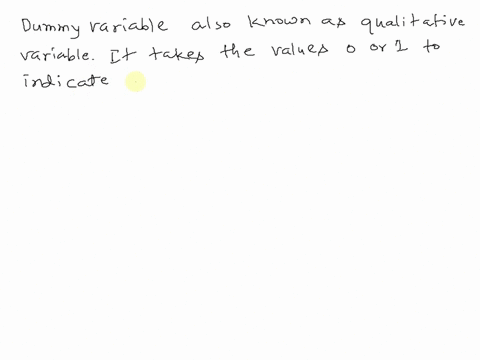 Dummy variable also known as qualitative
variable. It takes the values 0 or 1 to
indicate